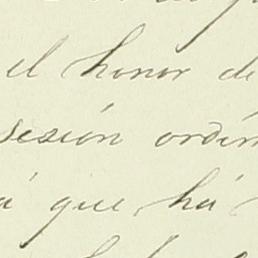 el honor de
sesión ordin
á que há